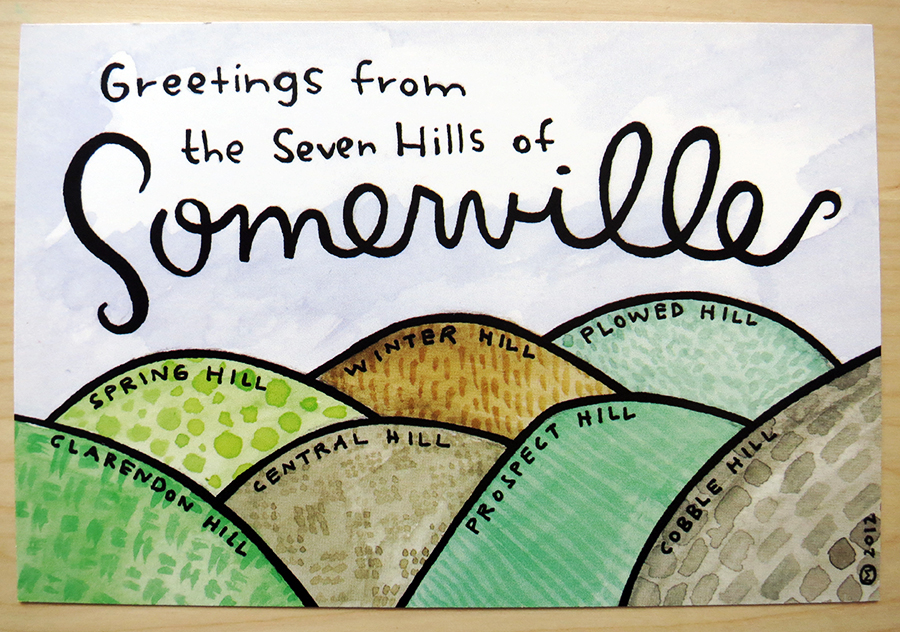 Greetings from
the Seven Hills of
Somerville
PLOWED HILL
WINTER HILL
SPRING HILL
PROSPECT HILL
CENTRAL HILL
CLARENDON HILL
COBBLE HILL
M 2012